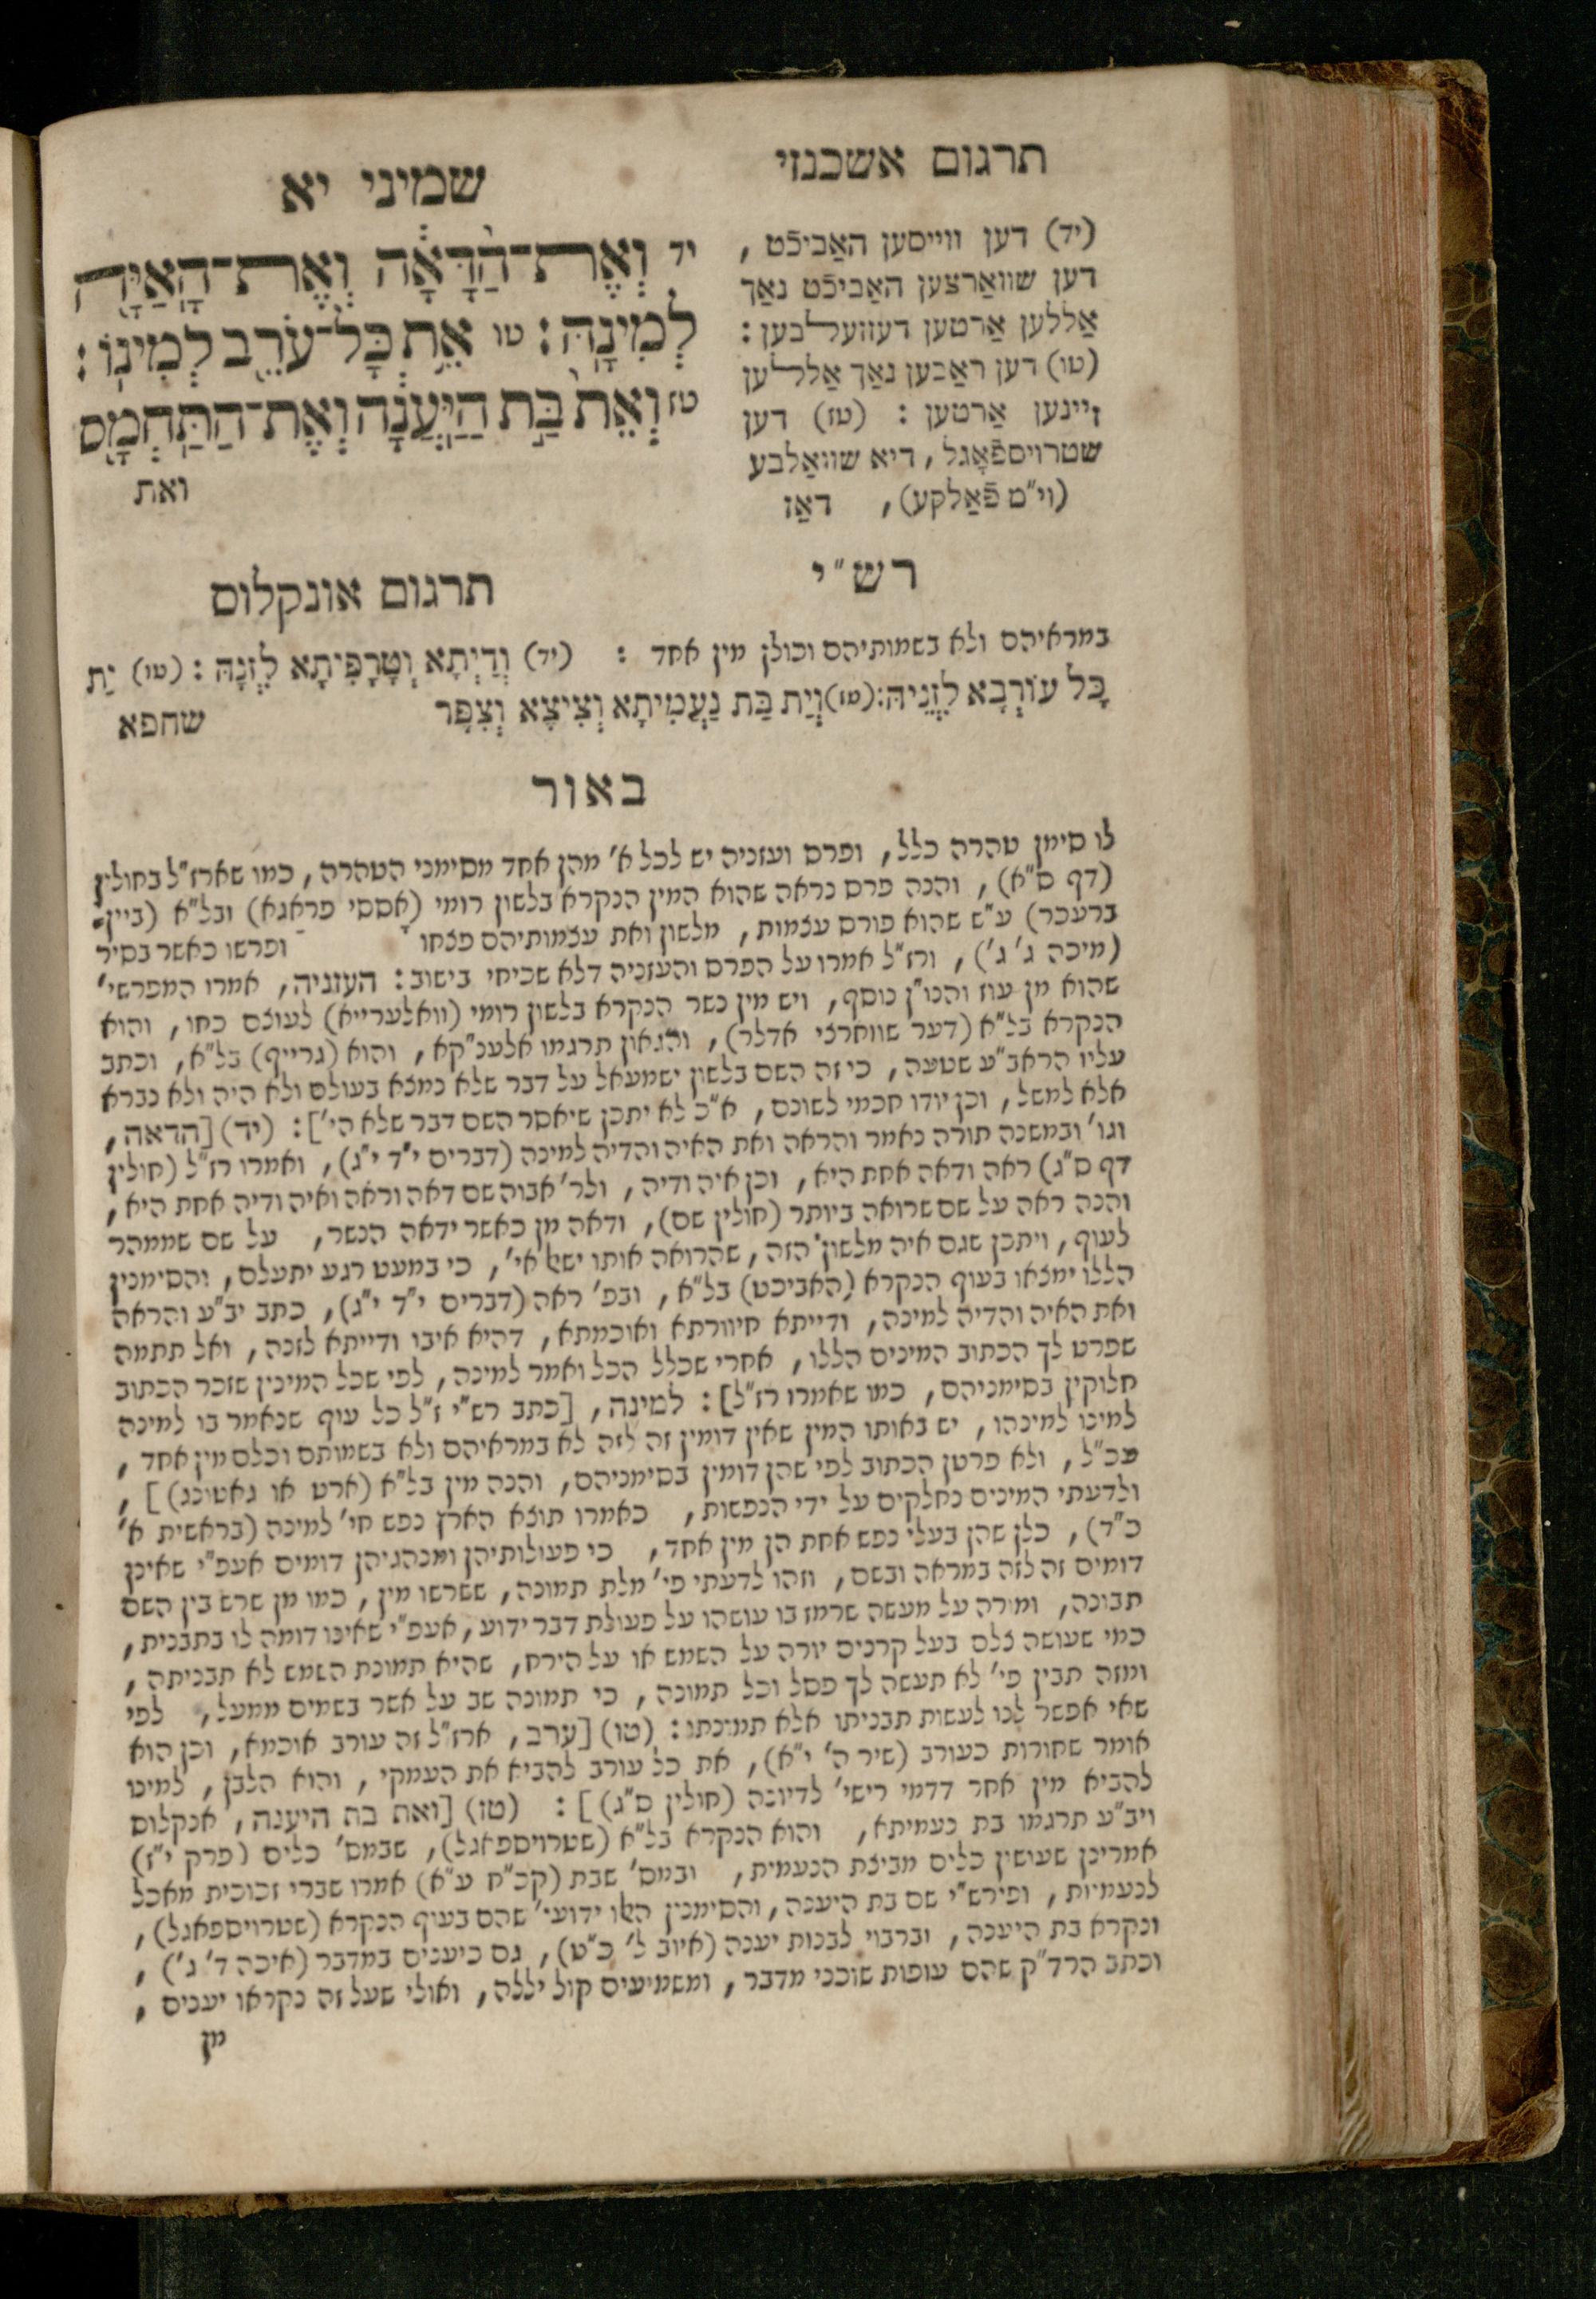 תרגום אשכנזי
שמיני יא
(יד) דען ווייסען האַביכֿט,
דען שוואַרצען האַביכֿט נאַך
אַללען אַרטען דעזזעלבען:
(טו) דען ראַבען נאַך אַללען
זיינען אַרטען: (טז) דען
שטרויספֿאָגל, דיא שוואַלבע
(וי"מ פֿאַלקע), דאַז
יד וְאֶת־הַ֨דָּאָ֔ה וְאֶת־הָאַיָּ֖ה
לְמִינָֽהּ: טו אֵ֥ת כָּל־עֹרֵ֖ב לְמִינֽוֹ:
טז וְאֵת֙ בַּ֣ת הַֽיַּעֲנָ֔ה וְאֶת־הַתַּחְמָ֖ס
ואת
רש"י
תרגום אונקלוס
במראיהם ולא בשמותיהם וכולן מין אחד : (יד) וְדַיְתָא וְטָרָפִיתָא לִזְנָהּ: (טו) יַת
כָּל עוֹרְבָא לִזְנֵיהּ: (טז) וְיַת בַּת נַעֲמִיתָא וְצִיצָא וְצִפַּר
שחפא
באור
לו סימן טהרה כלל, ופרס ועזניה יש לכל א' מהן אחד מסימני הטהרה, כמו שארז"ל בחולין
(דף ס"א), והנה פרס נראה שהוא המין הנקרא בלשון רומי (אָססי פראַגא) ובל"א (ביין-
ברעכר) ע"ש שהוא פורס עצמות, מלשון ואת עצמותיהם פצחו ופרשו כאשר בסיר
(מיכה ג' ג'), ורז"ל אמרו על הפרס והעזניה דלא שכיחי בישוב: העזניה, אמרו המפרשי'
שהוא מן עוז והנו"ן נוסף, ויש מין נשר הנקרא בלשון רומי (וואלערייא) לעוצם כחו, והוא
הנקרא בל"א (דער שווארצי אדלר), והגאון תרגמו אלענ"קא, והוא (גרייף) בל"א, וכתב
עליו הראב"ע שטעה, כי זה השם בלשון ישמעאל על דבר שלא נמצא בעולם ולא היה ולא נברא
אלא למשל, וכן יודו חכמי לשונם, א"כ לא יתכן שיאסר השם דבר שלא הי']: (יד) [הדאה,
וגו' ובמשנה תורה נאמר והראה ואת האיה והדיה למינה (דברים י"ד י"ג), ואמרו רז"ל (חולין
דף ס"ג) ראה ודאה אחת היא, וכן איה ודיה, ולר' אבוה שם דאה וראה ואיה ודיה אחת היא,
והנה ראה על שם שרואה ביותר (חולין שם), ודאה מן כאשר ידאה הנשר, על שם שממהר
לעוף, ויתכן שגם איה מלשון הזה, שהרואה אותו ישאל אי', כי במעט רגע יתעלם, והסימנין
הללו ימצאו בעוף הנקרא (האביכט) בל"א, ובפ' ראה (דברים י"ד י"ג), כתב יב"ע והראה
ואת האיה והדיה למינה, ודייתא חיוורתא ואוכמתא, דהיא איבו ודייתא לזנה, ואל תתמה
שפרט לך הכתוב המינים הללו, אחרי שכלל הכל ואמר למינה, לפי שכל המינין שזכר הכתוב
חלוקין בסימניהם, כמו שאמרו רז"ל]: למינה, [כתב רש"י ז"ל כל עוף שנאמר בו למינה
למינו למינהו, יש באותו המין שאין דומין זה לזה לא במראיהם ולא בשמותם וכלם מין אחד,
עכ"ל, ולא פרטן הכתוב לפי שהן דומין בסימניהם, והנה מין בל"א (ארט או גאטונג)],
ולדעתי המינים נחלקים על ידי הנפשות, כאמרו תוצא הארץ נפש חי' למינה (בראשית א'
כ"ד), כלן שהן בעלי נפש אחת הן מין אחד, כי פעולותיהן ומנהגיהן דומים אעפ"י שאינן
דומים זה לזה במראה ובשם, וזהו לדעתי פי' מלת תמונה, ששרשו מין, כמו מן שרש בין השם
תבונה, ומורה על מעשה שרמז בו עושהו על פעולת דבר ידוע, אעפ"י שאינו דומה לו בתבנית,
כמי שעושה צלם בעל קרנים יורה על השמש או על הירח, שהיא תמונת השמש לא תבניתה,
ומזה תבין פי' לא תעשה לך פסל וכל תמונה, כי תמונה שב על אשר בשמים ממעל, לפי
שאי אפשר לנו לעשות תבניתו אלא תמונתו: (טו) [ערב, ארז"ל זה עורב אוכמא, וכן הוא
אומר שחורות כעורב (שיר ה' י"א), את כל עורב להביא את העמקי, והוא הלבן, למינו
להביא מין אחר דדמי רישי' לדיונה (חולין ס"ג)]: (טז) [ואת בת היענה, אנקלוס
ויב"ע תרגמו בת נעמיתא, והוא הנקרא בל"א (שטרויספאגל), שבמס' כלים (פרק י"ז)
אמרינן שעושין כלים מביצת הנעמית, ובמס' שבת (קכ"ח ע"א) אמרו שברי זכוכית מאכל
לנעמיות, ופירש"י שם בת היענה, והסימנין האלו ידועי' שהם בעוף הנקרא (שטרויספאגל),
ונקרא בת היענה, וברבוי לבנות יענה (איוב ל' כ"ט), גם כיענים במדבר (איכה ד' ג'),
וכתב הרד"ק שהם עופות שוכני מדבר, ומשמיעים קול יללה, ואולי שעל זה נקראו יענים,
מן